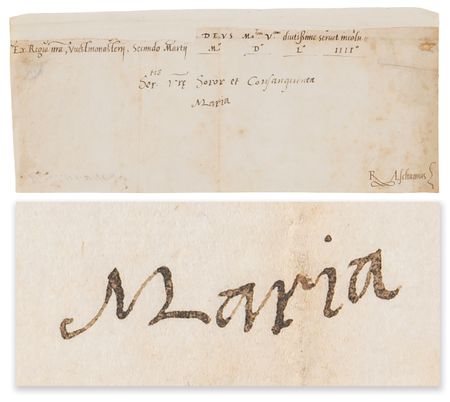 DEVS M. V. diutissime servet incolu
Ex Regia nra, Vuestmonasterij. Secundo Martij
M. D. L. IIII.
Ser. tis Vrę Soror et Consanguinea
Maria
R. Aschamus
Maria